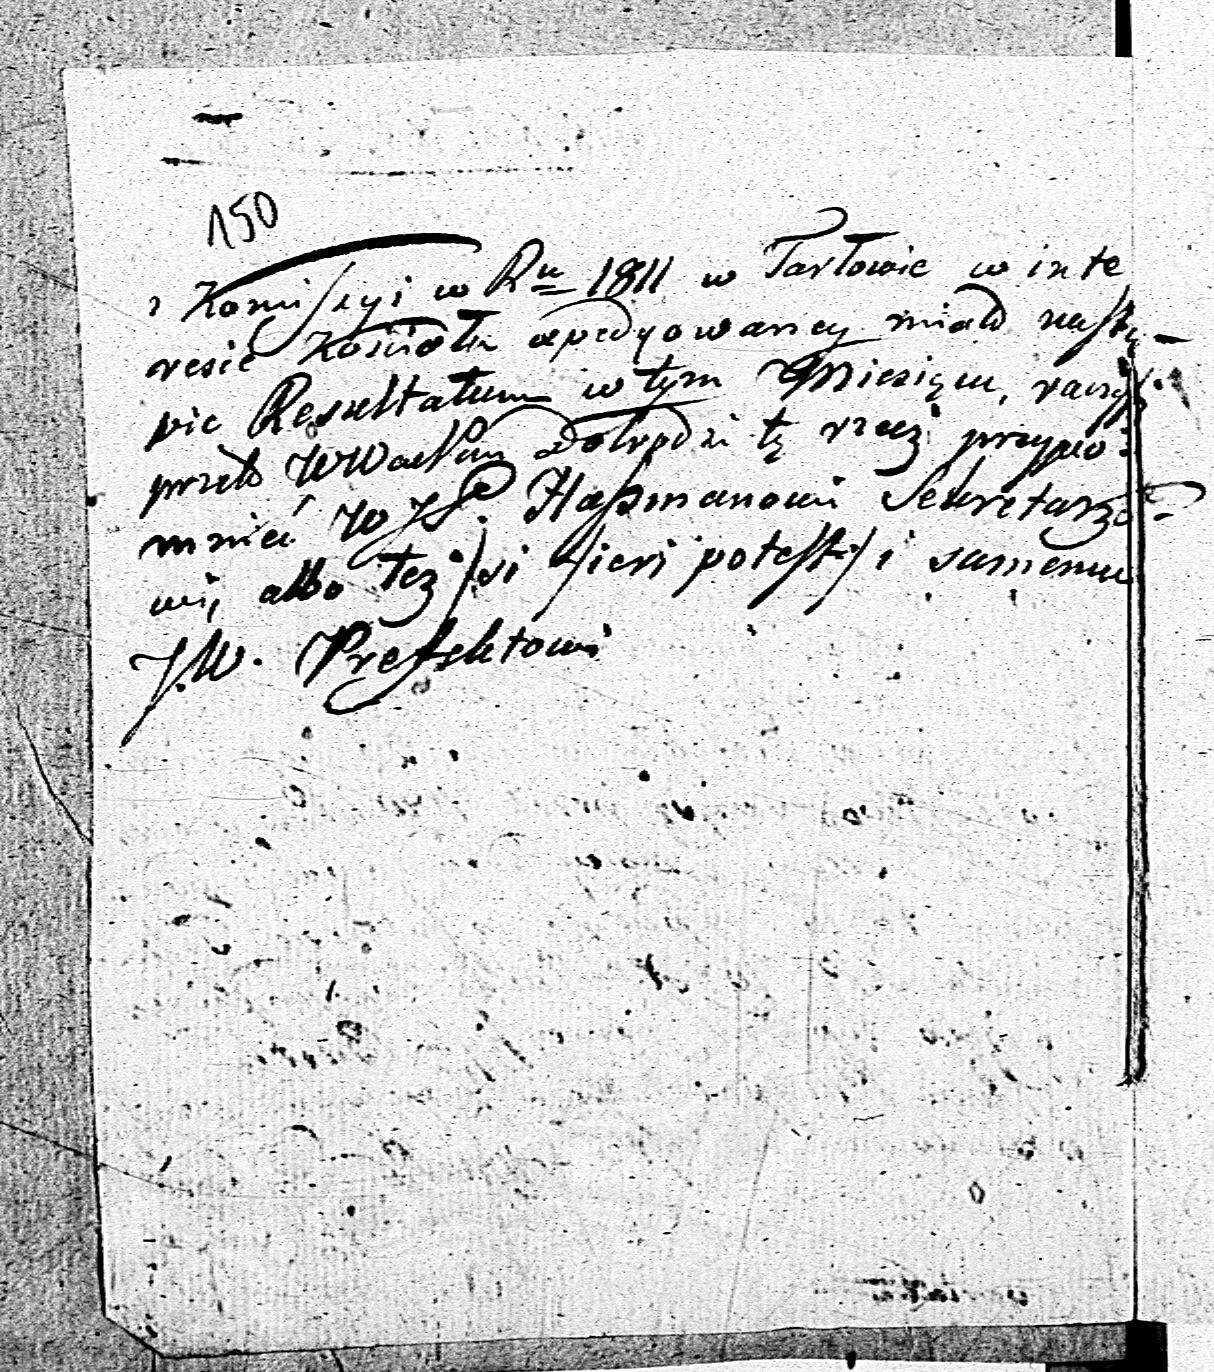 150
z Komiſsyi w Ru 1811 w Tarłowie w inte
resie Kościoła expedyowaney miało nastę-
pić Resultatum w tym Miesiącu, raczysz
przeto WWac Pan Dobrodzi tę rzecz przypo-
mnieć WJP. Haſsmanowi Sekretarzo-
wi, albo też /:si fieri poteſt:/ i samemu
J.W. Prefektowi